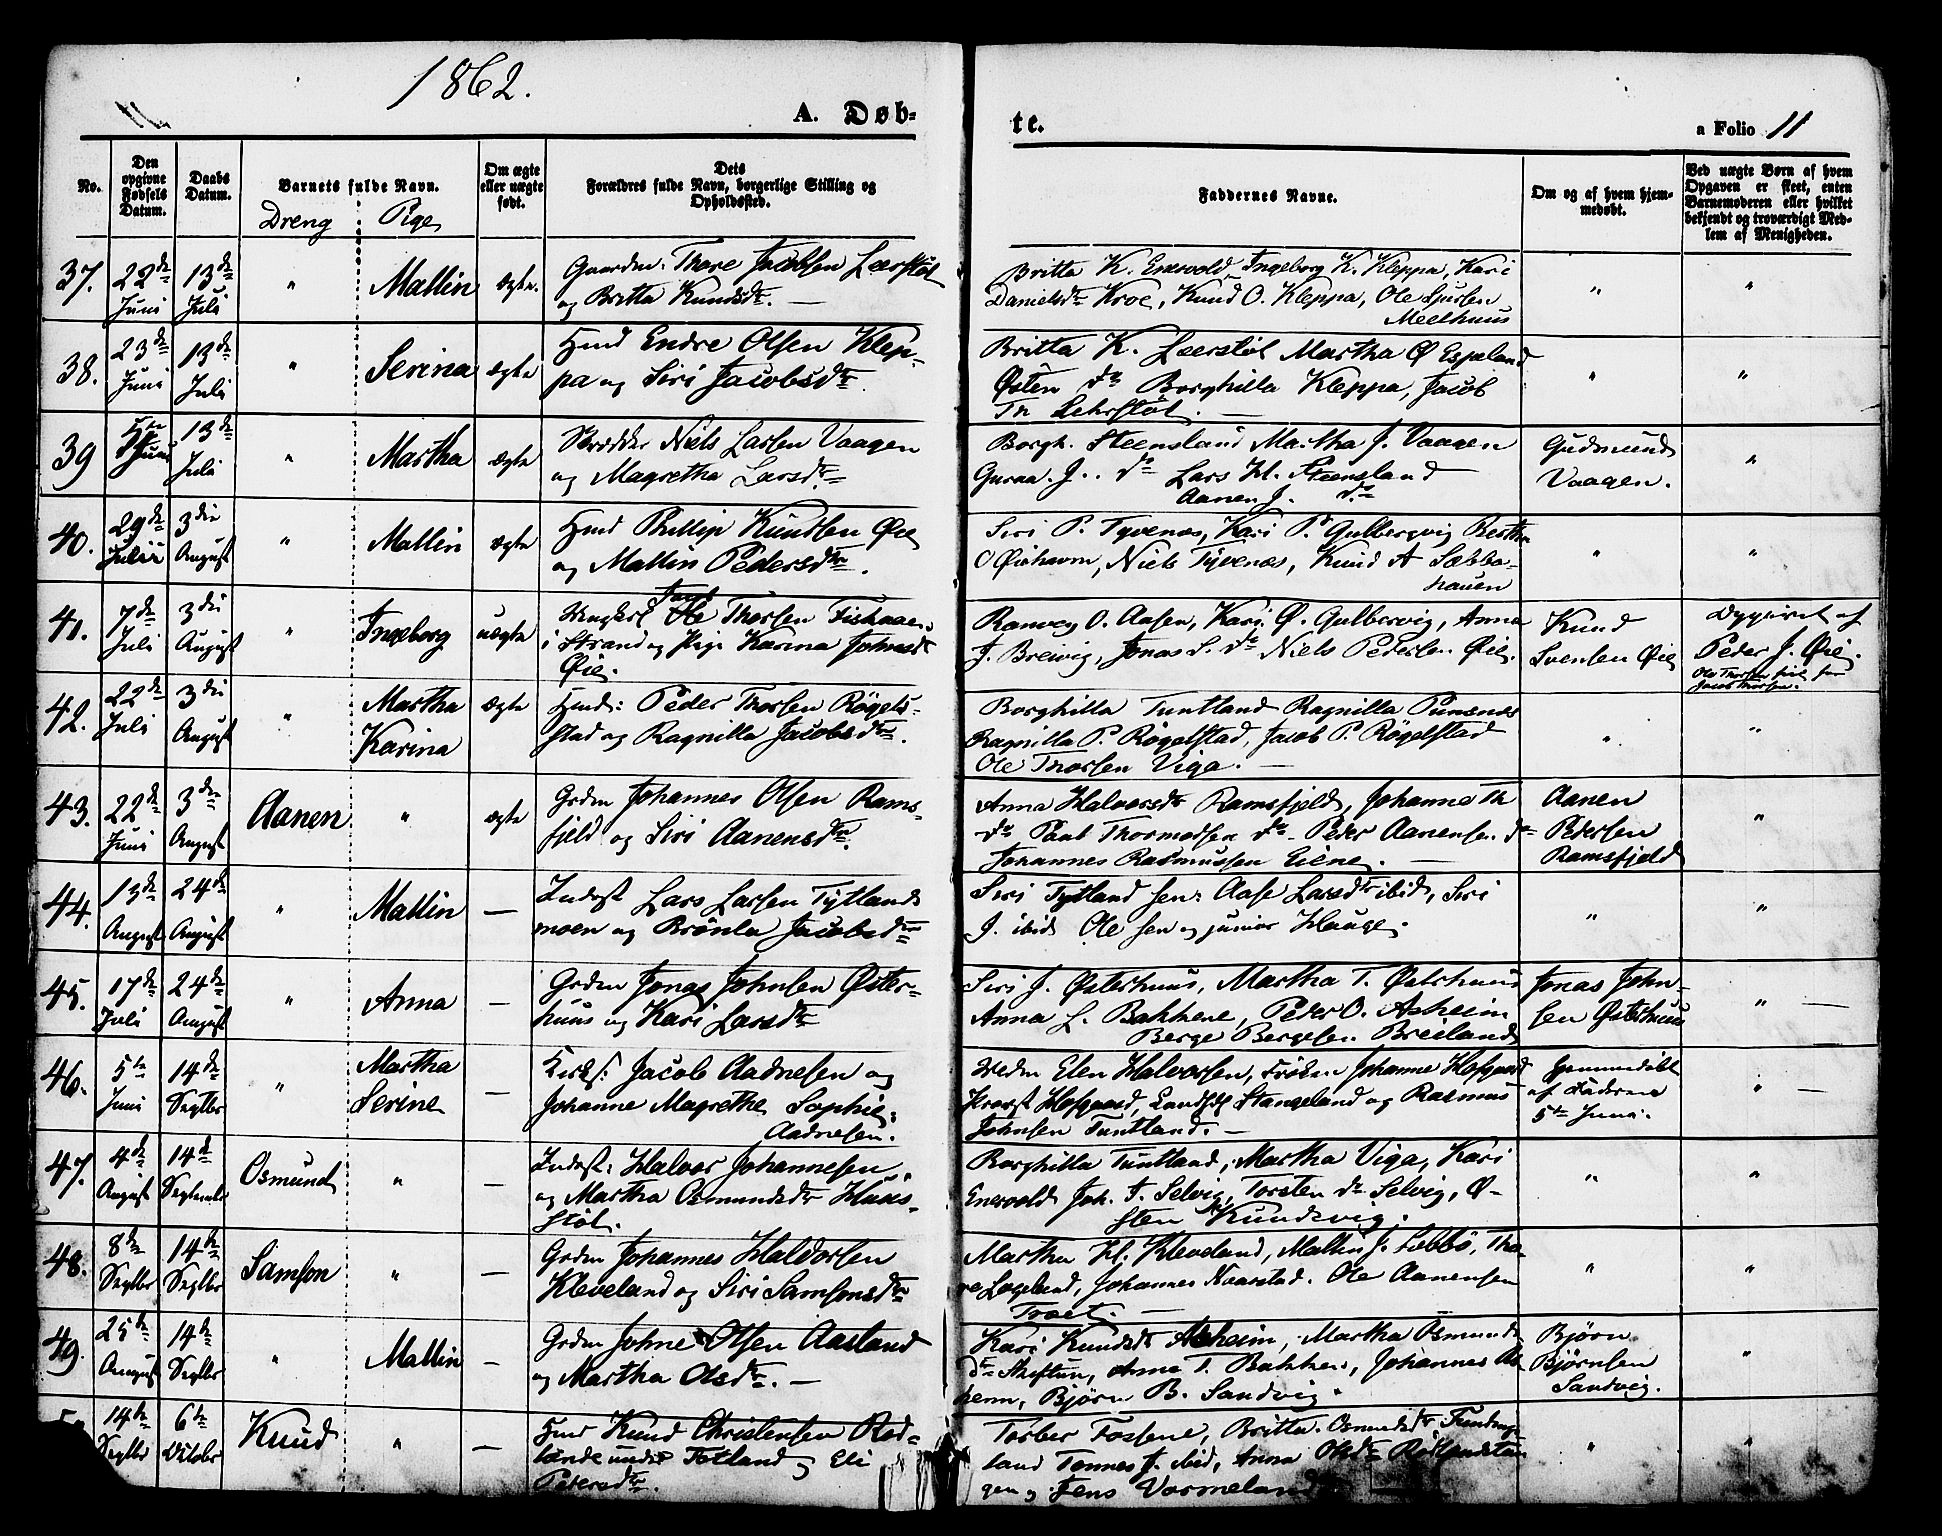 1862.
A. Døb=
te.
a Folio 11
No.
Den opgivne Fødsels Datum.
Daabs Datum.
Barnets fulde Navn.
Dreng Pige
Om ægte eller uægte født.
Dets
Forældres fulde Navn, borgerlige Stilling og
Opholdssted.
Faddernes Navne.
Om og af hvem hjem-
medøbt.
Ved uægte Børn af hvem
Opgaven er skeet, enten
Barnemoderen eller hvilket
bekjendt og troværdigt Med-
lem af Menigheden.
37. 22de Juni 13de Juli " Mallin ægte. Gaardm. Thore Jacobsen Leerstøl
og Britta Knudsdtr. —
Britta K. Enevold, Ingeborg K. Kleppa, Kari
Danielsdtr Kroe, Knud O. Kleppa, Ole Sjursen
Meelhuus
" "
38. 23de Juni 13de Juli " Serina ægte Huusd Endre Olsen Klep-
pa og Siri Jacobsdtr.
Britta K. Leerstøl Martha Ø Espeland
Østen do Borghilla Kleppa, Jacob
Th Lehrstøl. —
" "
39 Juni 13de Juli " Martha ægte Skrædder Niels Larsen Vaagen
og Magretha Larsdtr
Borgh. Steensland Martha J. Vaagen
Guraa. J. do Lars H. Steensland
Aanen J. do
Gudmund
Vaagen.
"
40. 29de Julii 3die August " Mallin ægte Huusd Phillip Knudsen Øie
og Mallin Pedersdtr.
Siri P. Tyvenæs, Kari P. Gulbergvig Bertha
O Øiehavn, Niels Tyvenæs, Knud A Sæbbø-
hauen
" "
41. 7de Juli 3die August " Ingeborg uægte Ungkarl Ole Thorsen Fiskaaen
Jacob
i Strand og Pige Karina Johnsdtr
Øie.
Ranvey O. Aasen, Kari Ø. Gulbersvig, Anna
J. Breivig, Jonas S. do Niels Pedersen Øie.
Knud
Svensen Øie
Opgivet af
Peder J. Øie.
Ole Thorsen feil for
Jacob Thorsen.
42. 22de Juli 3die August " Martha
Karina
ægte Huusd: Peder Thorsen Røgels-
stad og Ragnilla Jacobsdtr.
Borghilla Tuntland Ragnilla Punsnes
Ragnilla P. Røgelstad, Jacob P. Røgelstad
Ole Thorsen Viga. —
" "
43. 22de Juni 3die August Aanen " ægte Grdm Johannes Olsen Rams-
fjeld og Siri Aanensdtr.
Anna Halvorsdtr Ramsfjeld, Johanne Th
do Paul Thormodsen do Peder Aanensen do
Johannes Rasmussen Eiene. —
Aanen
Pedersen
Ramsfjeld
"
44. 13de August 24de August " Mallin — Inderst Lars Larsen Tytlands
moen og Brönla Jacobsdtr
Siri Tytland sen: Aase Larsdtr ibid, Siri
J. ibid Ole sen og junior Hauge.
" "
45. 17de Juli 24de August " Anna — Grdm Jonas Johnsen Øster-
huus og Kari Larsdtr
Siri J. Østerhuus, Martha T. Østehuus
Anna L. Bakkene, Peder O. Asheim
Berge Bergesen Breiland
Jonas John-
sen Østehuus
" —
46. 5te Juni 14de Septbr " Martha
Serine
— Kirks: Jacob Aadnesen og
Johanne Magrethe Sophie
Aadnesen.
Madm Elen Halvorsen, Frøken Johanne Hofgaard
Provst Hofgaard, Landhdl Stangeland og Rasmus
Johnsen Tuntland. —
Hjemmedøbt
af Faderen
5te Juni.
" —
47. 4de August 14de September Osmund " — Inderst: Halvor Johannesen
og Martha Osmundsdtr Huus-
støl.
Borghilla Tuntland, Martha Viga, Kari
Enevold, Joh. T. Selvig, Torsten do Selvig, Ø-
sten Kundsvig.
" "
48. 8de Septbr 14de Septbr Samson " — Grdm Johannes Haldorsen
Kleveland og Siri Samsonsdtr
Martha H. Kleveland, Mallin J. Sæbbø, Tho-
re Løgeland, Johannes Naarstad. Ole Aanensen
Troet. —
" "
49. 25de August 14de Septbr " Mallin — Grdm Johne Olsen Aasland
og Martha Olsdtr. —
Kari Knudsdtr Asheim, Martha Osmunds
dtr Skiftun, Anna T. Bakken, Johannes As-
heim, Bjørn B. Sandvig.
Bjørn
Bjørnsen
Sandvig.
"
14de Septbr 6te October Knud " — Huusd Knud Christensen Rød-
lande under Totland og Eli
Petersdtr.
Torber Fossene, Britta Osmundsdtr
land Tønnes J. ibid, Anna Olsdtr Rødlandstan
gen og Jens Vormeland
" "